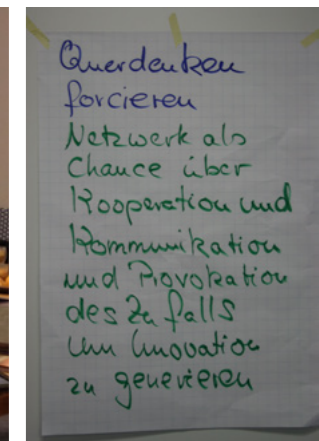 Querdenken
forcieren
Netzwerk als
Chance über
Kooperation und
Kommunikation
und Provokation
des Zufalls
um Innovation
zu generieren